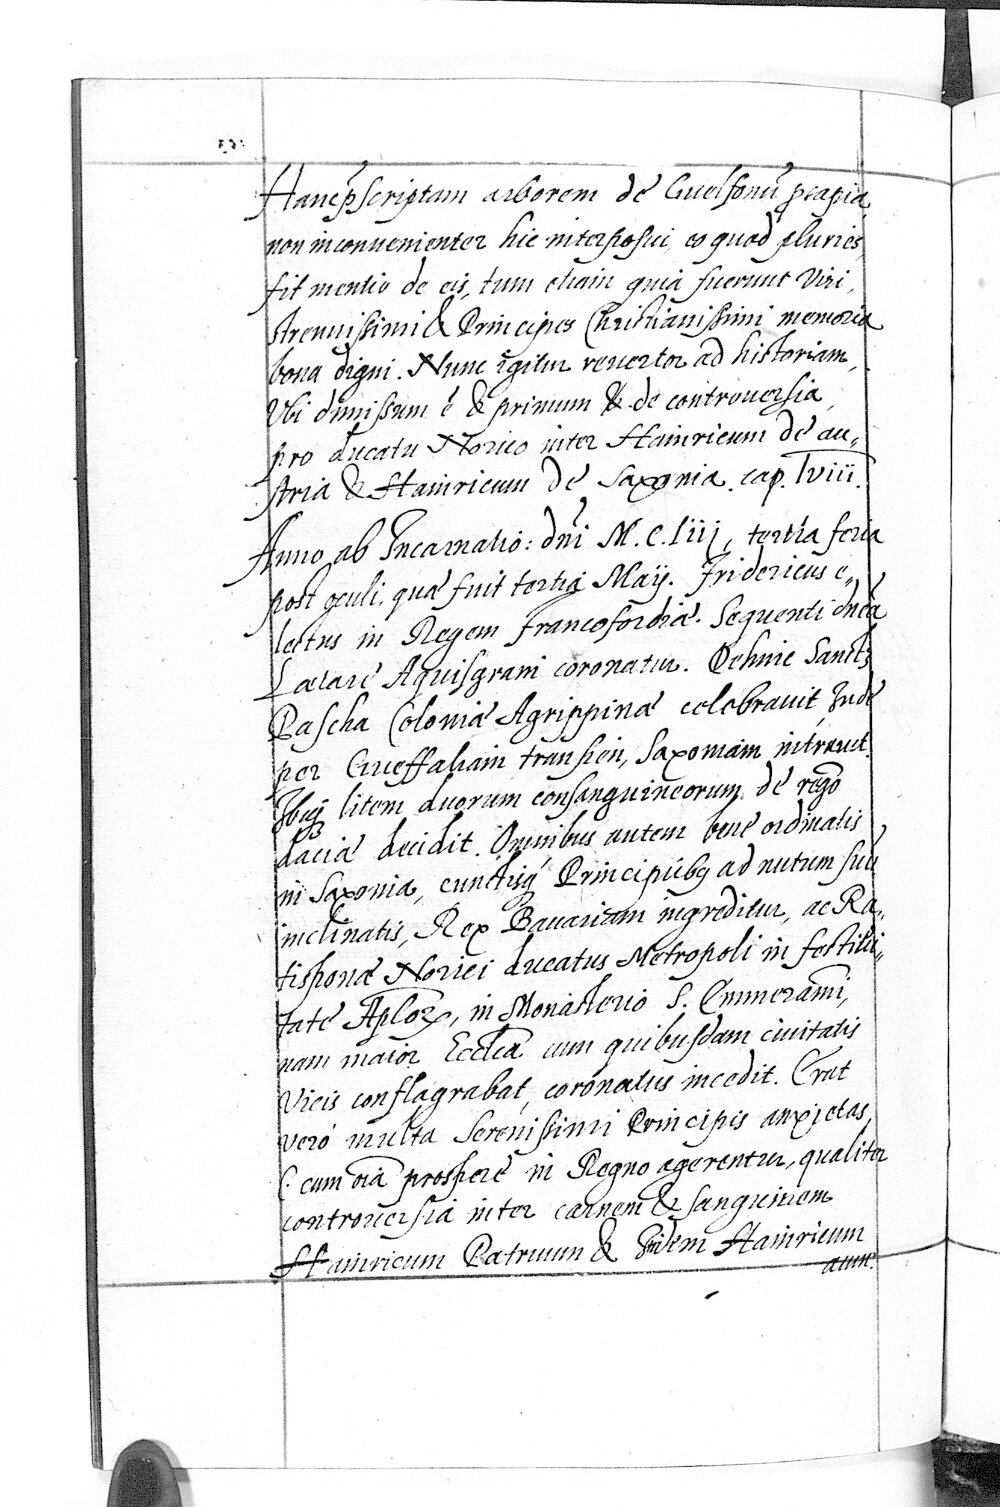 Hanc p̄scriptam arborem de Guelfonū p̄sapia,
non inconuenienter hic interposui, eo quod pluries,
fit mentio de eis, tum etiam quia fuerunt Viri,
strenuissimi & Principes Christianissimi memoria
bona digni. Nunc igitur reuertor ad historiam,
Vbi dimissum ē & primum & de controuersia,
pro ducatu Norico inter Hainricum de au„
stria & Hainricum de Saxonia. cap. lviii.
Anno ab Incarnatio: dn̄i M.C.liij, tertia feria
post oculi, quae fuit tertia Maij. Fridericus e„
lectus in Regem Francofordiae. Sequenti dn̄ca
Laetare Aquisgrani coronatur. Dehinc Sanctū
Pascha Coloniae Agrippinae celebrauit, Inde
per Gueffaliam transien, Saxoniam intrauit.
Ibiq litem duorum consanguineorum de regō
daciae decidit. Omnibus autem bene ordinatis
in Saxonia, cunctisq́ Principibꝫ ad nutum suū
inclinatis, Rex Bauariam ingreditur, ac Ra„
tisponae Norici ducatus Metropoli in festiui„
tate Apl̄oꝝ, in Monasterio S. Emmerami,
nam maior Eccl̄ia cum quibusdam ciuitatis
Vicis conflagrabat, coronatus incedit. Erat
verò multa Serenissimi Principis anxietas,
C. cum oīa prospere in Regno agerentur, qualiter
controuersia inter carnem & sanguinem
Hainricum Patruum & Hainricum